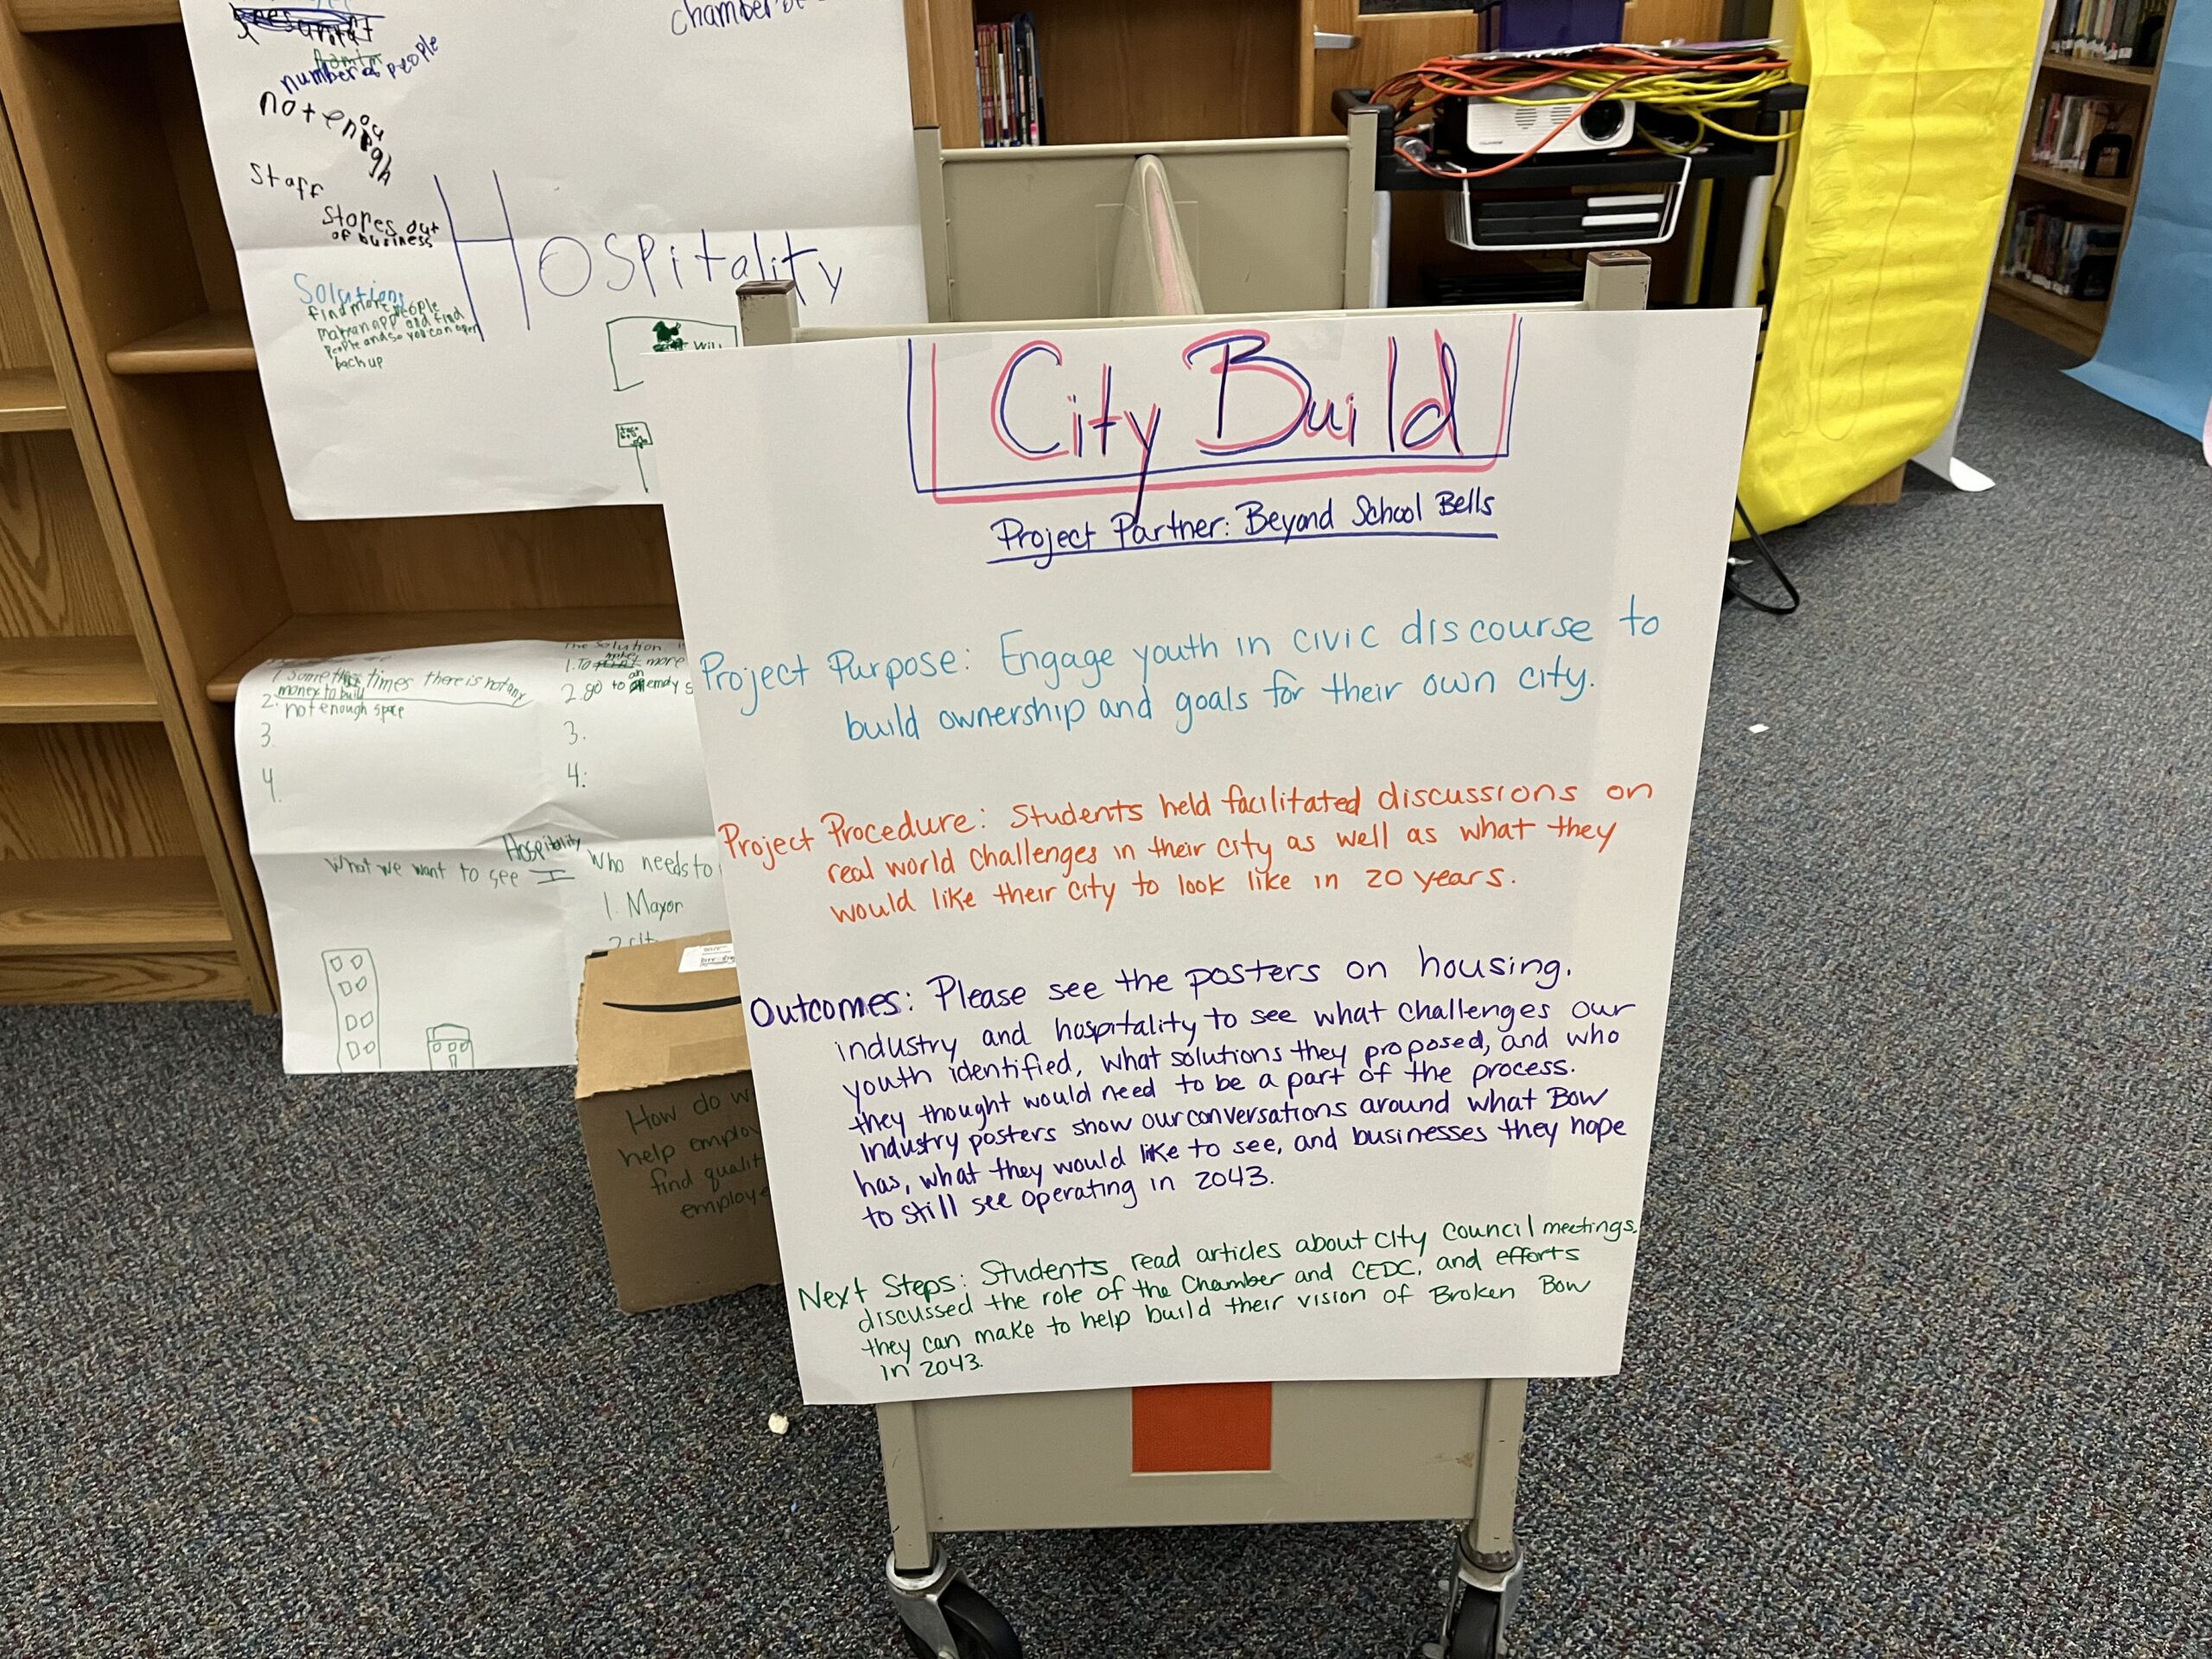 chamber of
number of people
not enough
Staff
Stores out
of business
Hospitality
Solutions
find more people
and find
people and so you can open
back up
Will
City Build
Project Partner: Beyond School Bells
Project Purpose: Engage youth in civic discourse to
build ownership and goals for their own city.
Project Procedure: Students held facilitated discussions on
real world challenges in their city as well as what they
would like their city to look like in 20 years.
Outcomes: Please see the posters on housing,
industry and hospitality to see what challenges our
youth identified, what solutions they proposed, and who
they thought would need to be a part of the process.
Industry posters show our conversations around what Bow
has, what they would like to see, and businesses they hope
to still see operating in 2043.
Next Steps: Students read articles about City Council meetings,
discussed the role of the Chamber and CEDC, and efforts
they can make to help build their vision of Broken Bow
in 2043.
1 Some times there is not any
money to build
2. not enough space
3.
4.
The solution
1. To make more
2. go to an emdy s
3.
4:
Hospitality
What we want to see
Who needs to
1. Mayor
How do w
help employ
find qualit
employe